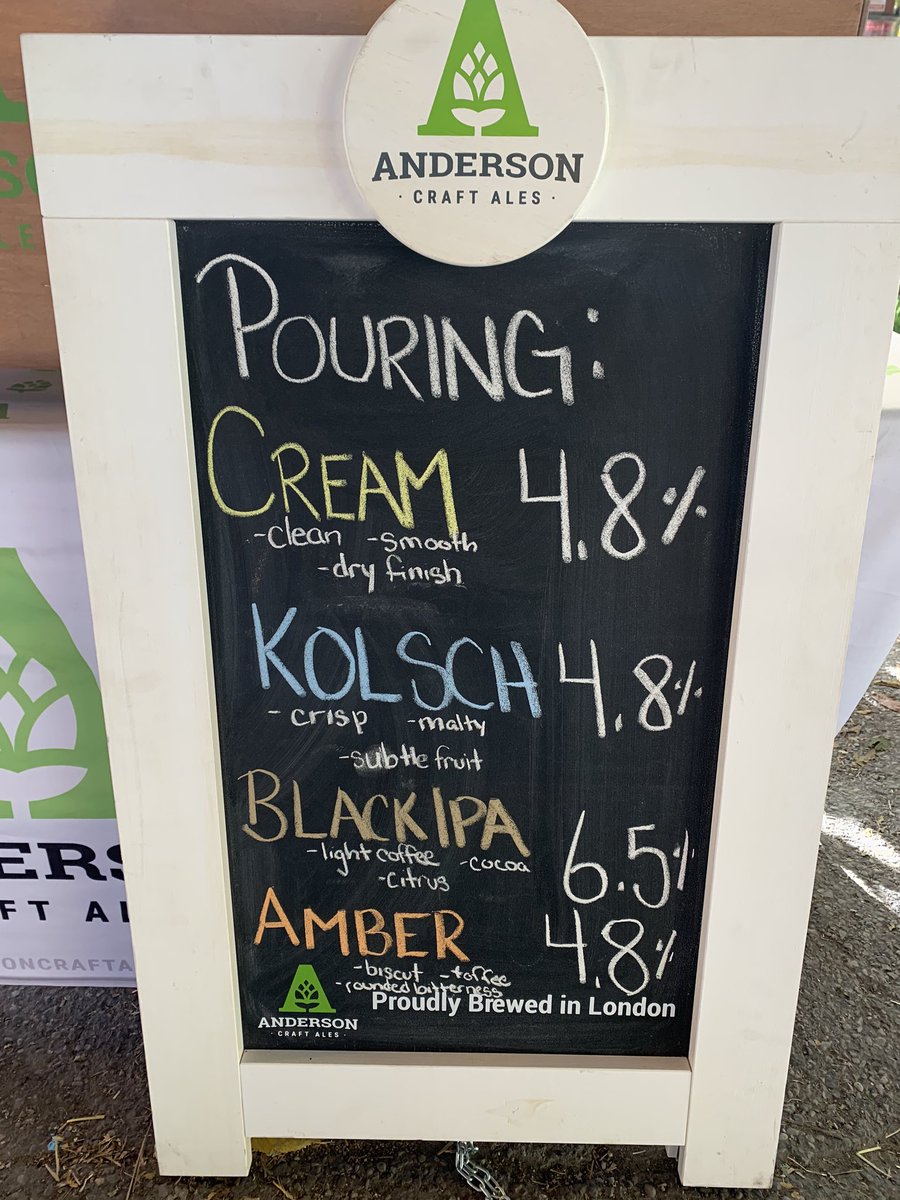 ANDERSON
· CRAFT ALES ·
POURING:
CREAM 4.8%
-clean -smooth
-dry finish
KOLSCH 4.8%
- crisp -malty
-subtle fruit
BLACK IPA 6.5%
-light coffee -cocoa
-citrus
AMBER 4.8%
-biscut -toffee
-rounded bitterness
Proudly Brewed in London
ANDERSON
· CRAFT ALES ·
ERS
FT AL
ONCRAFTA